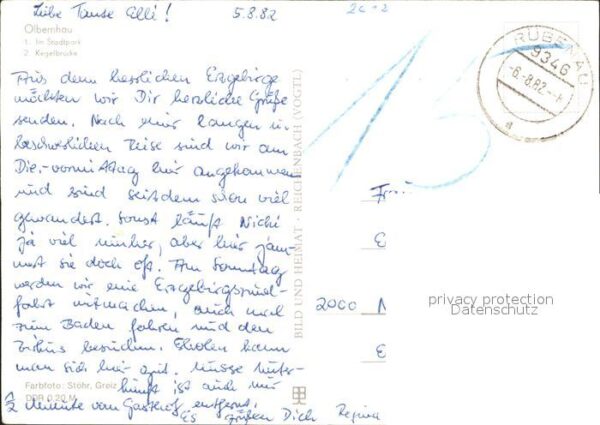 Liebe Tante Elli! 5.8.82
Olbernhau
1. Im Stadtpark
2. Kegelbrücke
Aus dem herrlichen Erzgebirge
möchten wir Dir herzliche Grüße
senden. Nach einer langen u.
beschwerlichen Reise sind wir am
Die.-vormittag hier angekommen
und sind seitdem schon viel
gewandert. Sonst läuft
ja viel, aber hier jam-
mert sie doch oft. Am Sonntag
werden wir eine Erzgebirgsrund-
fahrt mitmachen, auch mal
zum Baden fahren und den
Zirkus besuchen. Erholen kann
man sich hier gut. Unsere Unter-
kunft ist auch nur
2 Minute vom Gasthof entfernt.
Es grüßen Dich Regina
Farbfoto: Stöhr, Greiz
DDR 0,20 M
BILD UND HEIMAT · REICHENBACH (VOGTL)
15
RÜBENAU
9346
-6.-8.82
a
Frau
E
2000 N
E
privacy protection
Datenschutz